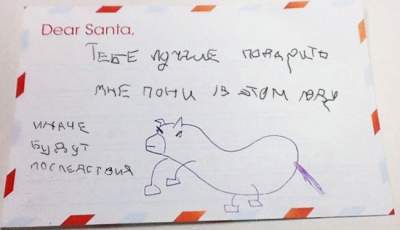 Dear Santa,
ТЕБЕ ЛУЧШЕ ПОДАРИТЬ
МНЕ ПОНИ В ЭТОМ ГОДУ
ИНАЧЕ
БУДУТ
ПОСЛЕДСТВИЯ